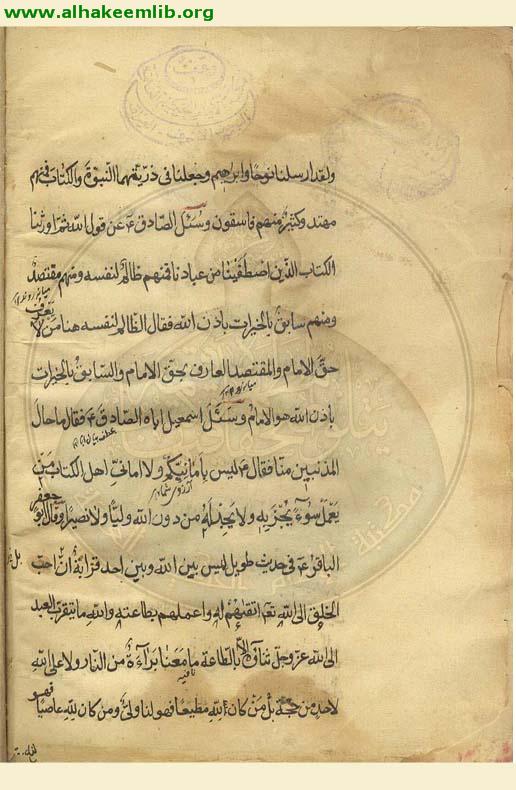 www.alhakeemlib.org
ولقد ارسلنا نوحا وابراهيم وجعلنا فى ذريتهما النبوة والكتاب فمنهم
مهتد وكثير منهم فاسقون وسئل الصادق ع عن قول الله ثم اورثنا
الكتاب الذين اصطفينا من عبادنا فمنهم ظالم لنفسه ومنهم مقتصد
ومنهم سابق بالخيرات باذن الله فقال الظالم لنفسه هنا من لا يعرف
حق الامام والمقتصد العارف بحق الامام والسابق بالخيرات
باذن الله هو الامام وسئل اسمعيل اباه الصادق ع فقال ما حال
المذنبين منا فقال ع ليس بامانيكم ولا امانى اهل الكتاب من
يعمل سوء يجز به ولا يجد له من دون الله وليا ولا نصيرا وقال ابو جعفر
الباقر ع فى حديث طويل ليس بين الله وبين احد قرابة ان احب
الخلق الى الله تع اتقيهم له واعملهم بطاعته والله ما يتقرب العبد
الى الله عز وجل ثناؤه الا بالطاعة ما معنا براءة من النار ولا على الله
لاحد من حجة بل من كان لله مطيعا فهو لنا ولى ومن كان لله عاصيا فهو